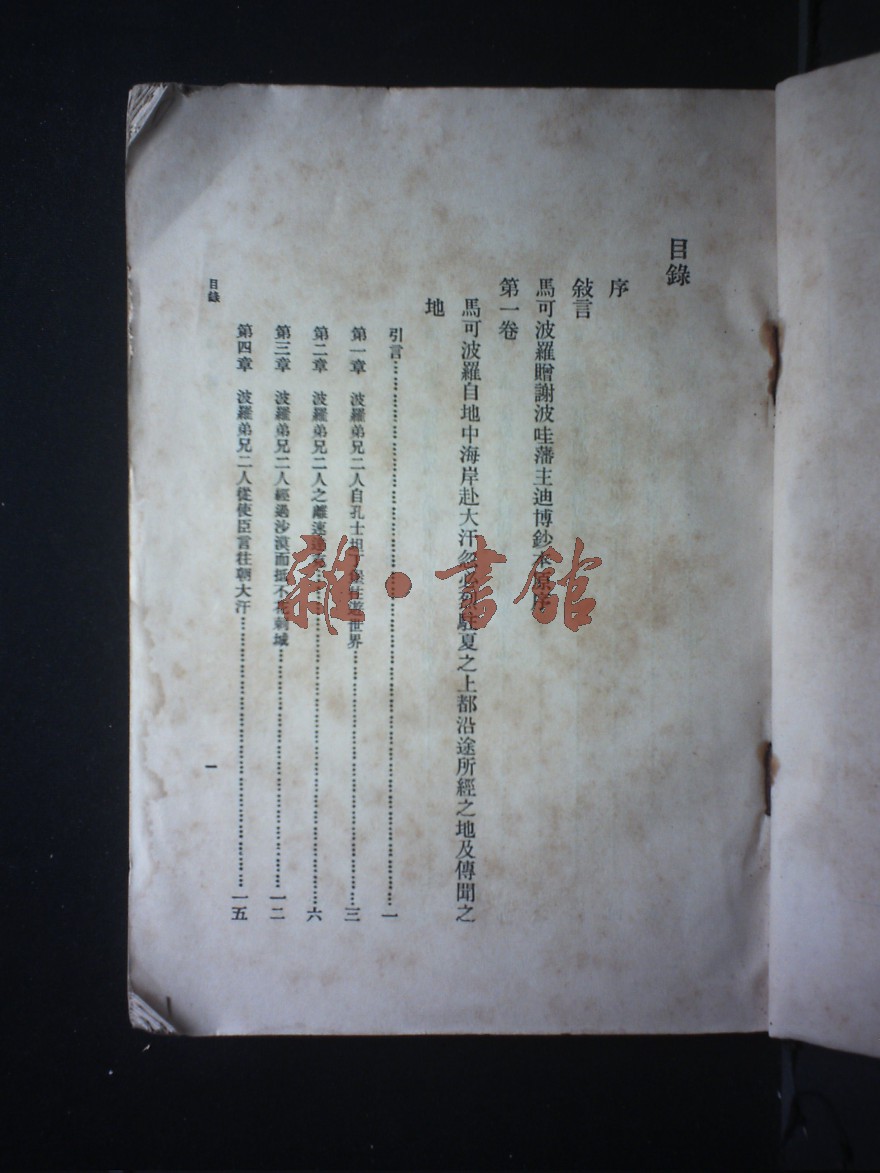 目錄
序
敍言
馬可波羅贈謝波哇藩主迪博鈔本原序
第一卷
馬可波羅自地中海岸赴大汗忽必烈駐夏之上都沿途所經之地及傳聞之
地
引言……………………一
第一章 波羅弟兄二人自孔士坦丁堡往遊世界……………………三
第二章 波羅弟兄二人之離速達克……………………六
第三章 波羅弟兄二人經過沙漠而抵不花剌城……………………一二
第四章 波羅弟兄二人從使臣言往朝大汗……………………一五
目錄
一
雜·書館